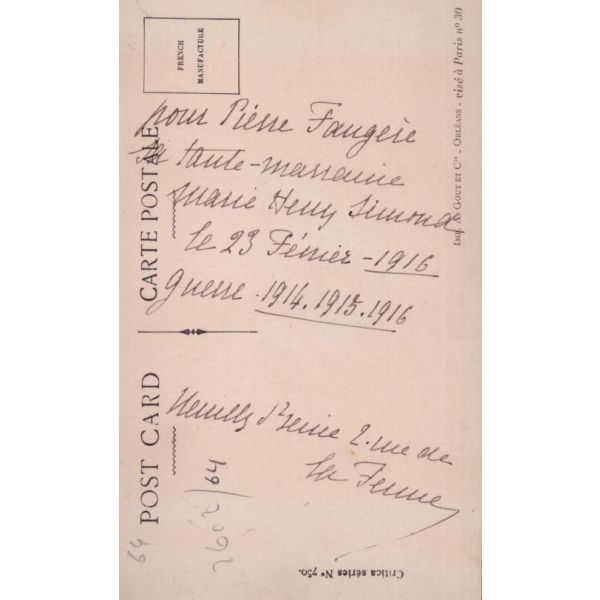 FRENCH
MANUFACTURE
CARTE POSTALE
POST CARD
pour Pierre Faugère
sa tante-marraine
Marie Henry Simond
le 23 Février - 1916
guerre . 1914. 1915. 1916
Neuilly s/ Seine 2. rue de
la Ferme
2602/64
64
Critica séries Nº 750.
IMP. A. GOUT ET Cie - ORLÉANS - visé à Paris nº 30